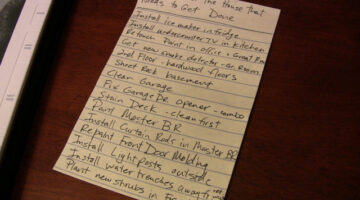 The House that
Needs to Get Done
Install ice maker in fridge
Install undercounter TV in Kitchen
Retouch Paint in office + Great Rm
Get new smoke detector - Gr. Room
2nd Floor - hardwood floors
Sheet Rock basement
Clean Garage
Fix Garage Dr opener - combo
Stain Deck - clean first
Paint Master BR
Install Curtain Rods in Master BR
Repaint Front Door Molding
Install Light posts outside
Install water trenches away
Plant new shrubs in